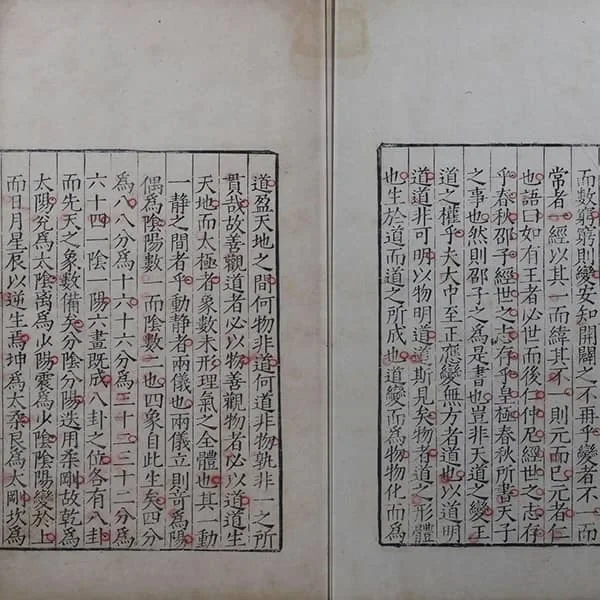 而數窮窮則變安知開闢之不再乎變者不一而
常者一經以其一而緯其不一則元而已元者仁
也語曰如有王者必世而後仁仲尼經世之志存
乎春秋邵子經世之志存乎皇極春秋所書天子
之事也然則邵子之為是書也豈非天道之變王
道之權乎夫大中至正應變無方者道也以道明
道道非可明以物明道道斯見矣物者道之形體
也生於道而道之所成也道變而為物物化而為
道盈天地之間何物非道何道非物孰非一之所
貫哉故善觀道者必以物善觀物者必以道道生
天地而太極者象數未形理氣之全體也其一動
一靜之間者乎動靜者兩儀也兩儀立則奇為陽
偶為陰陽數一而陰數二也四象自此生矣四分
為八八分為十六十六分為三十二三十二分為
六十四一陰一陽六畫既成八卦之位各有八卦
而先天之象數備矣分陰分陽迭用柔剛故乾為
太陽兌為太陰離為少陽震為少陰陰陽變於上
而日月星辰以逆生焉坤為太柔艮為太剛坎為